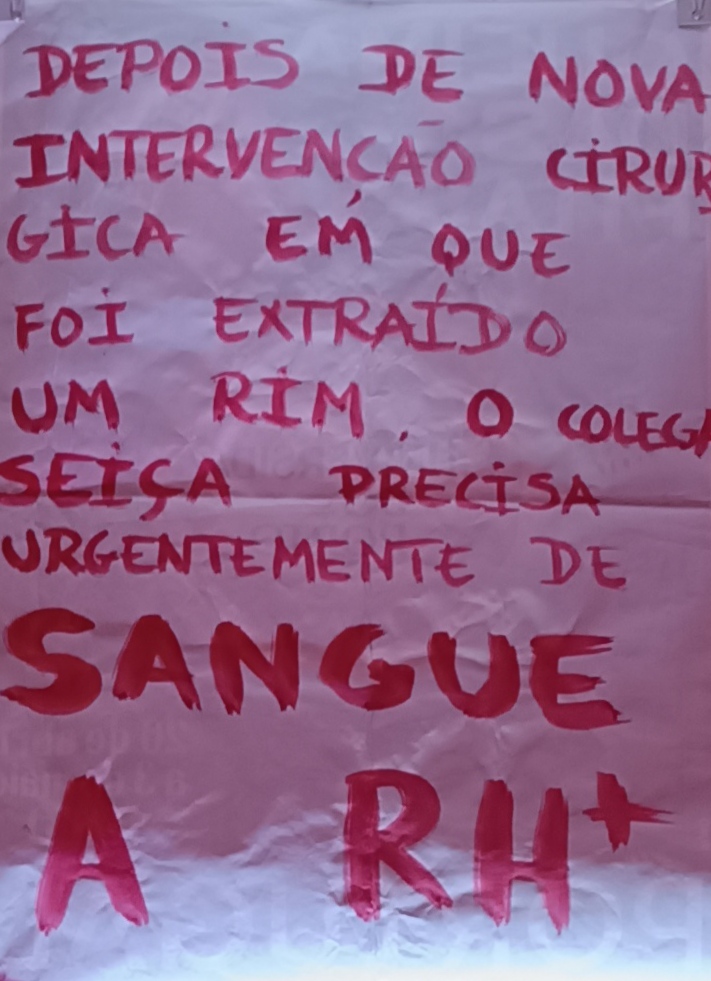 DEPOIS DE NOVA
INTERVENÇÃO CIRUR
GICA EM QUE
FOI EXTRAÍDO
UM RIM, O COLEGA
SEIÇA PRECISA
URGENTEMENTE DE
SANGUE
A RH+